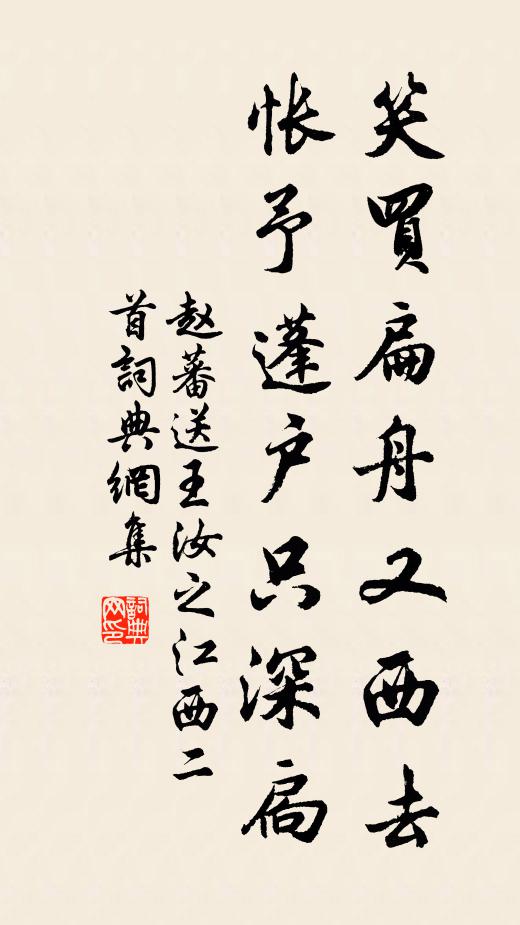 笑買扁舟又西去
悵予蓬户只深扃
赵蕃送王汝之江西二
首詞典網集
詞典
网印